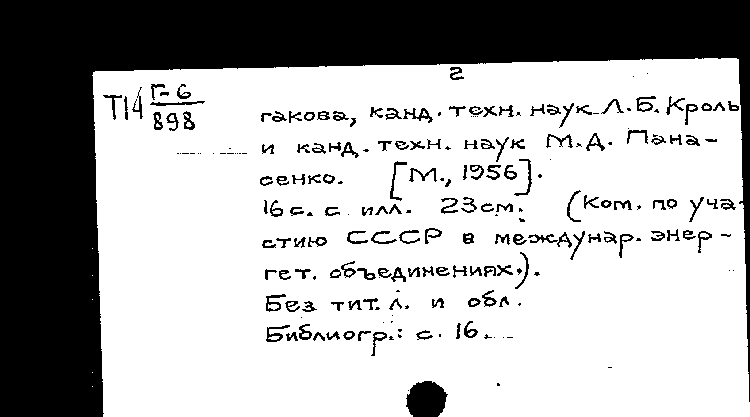 2
Т14 Г-6
898
гакова, канд. техн. наук Л.Б. Кроль
и канд. техн. наук М.Д. Пана-
сенко. [М., 1956].
16 с. с илл. 23 см. (Ком. по уча-
стию СССР в междунар. энер-
гет. объединениях.).
Без тит. л. и обл.
Библиогр.: с. 16.